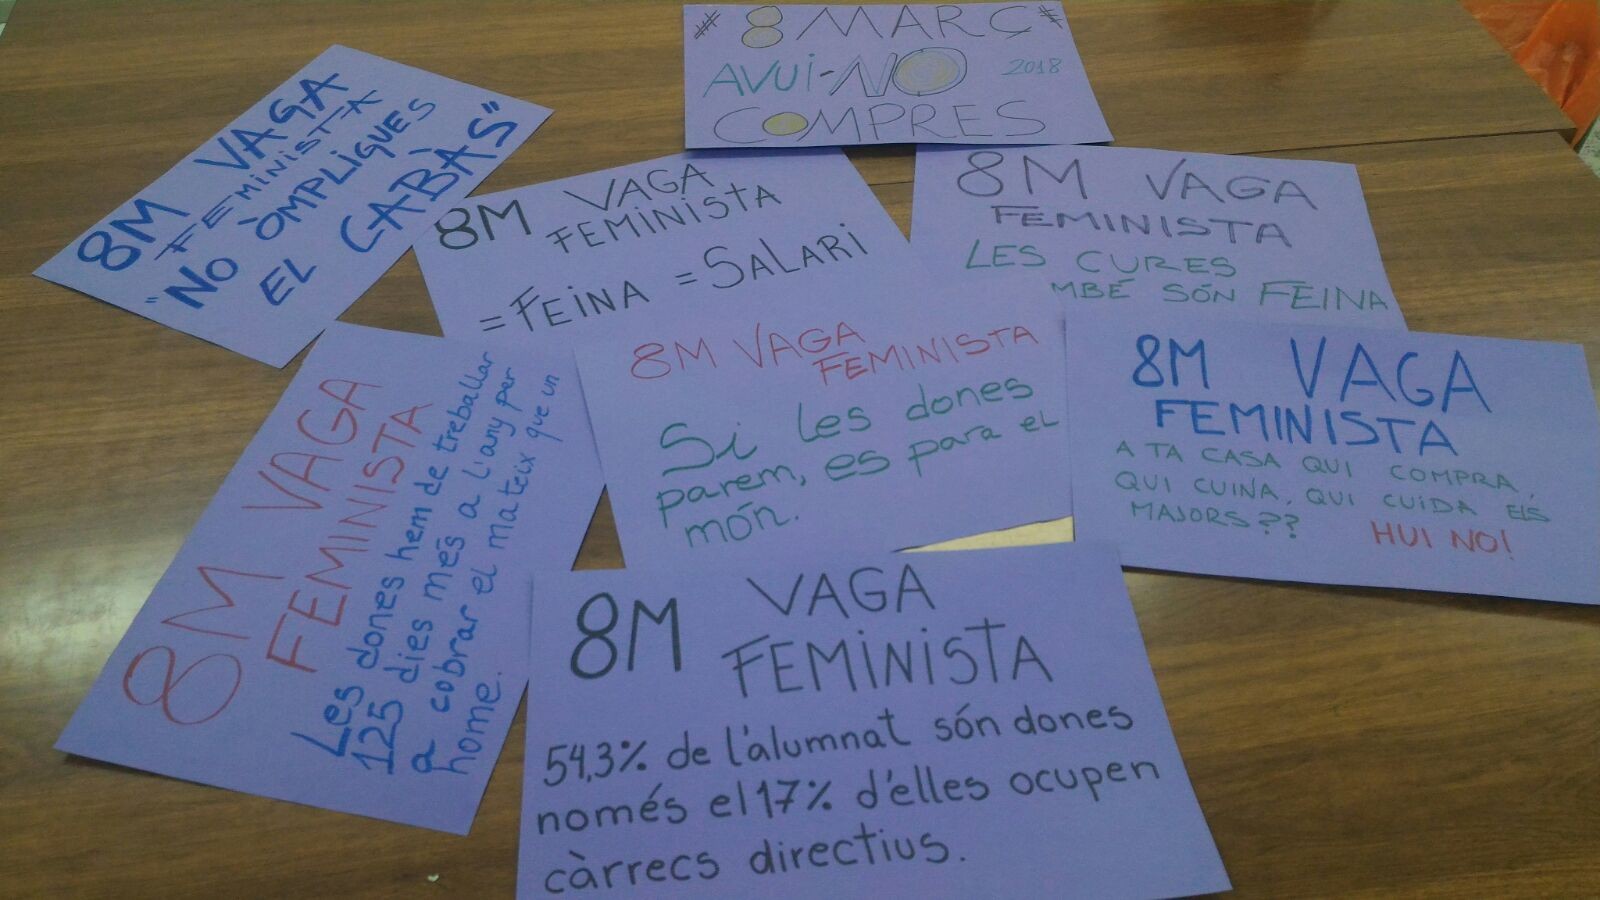 # 8 MARÇ #
AVUI-NO 2018
COMPRES
8M VAGA
FEMINISTA
"NO ÒMPLIGUES
EL CABÀS"
8M VAGA
FEMINISTA
= FEINA = SALARI
8M VAGA
FEMINISTA
LES CURES
MBÉ SÓN FEINA
8M VAGA
FEMINISTA
Les dones hem de treballar
125 dies més a l'any per
a cobrar el mateix que un
home.
8M VAGA
FEMINISTA
Si les dones
parem, es para el
món.
8M VAGA
FEMINISTA
A TA CASA QUI COMPRA,
QUI CUINA, QUI CUIDA ELS
MAJORS??
HUI NO!
8M VAGA
FEMINISTA
54,3% de l'alumnat són dones
només el 17% d'elles ocupen
càrrecs directius.